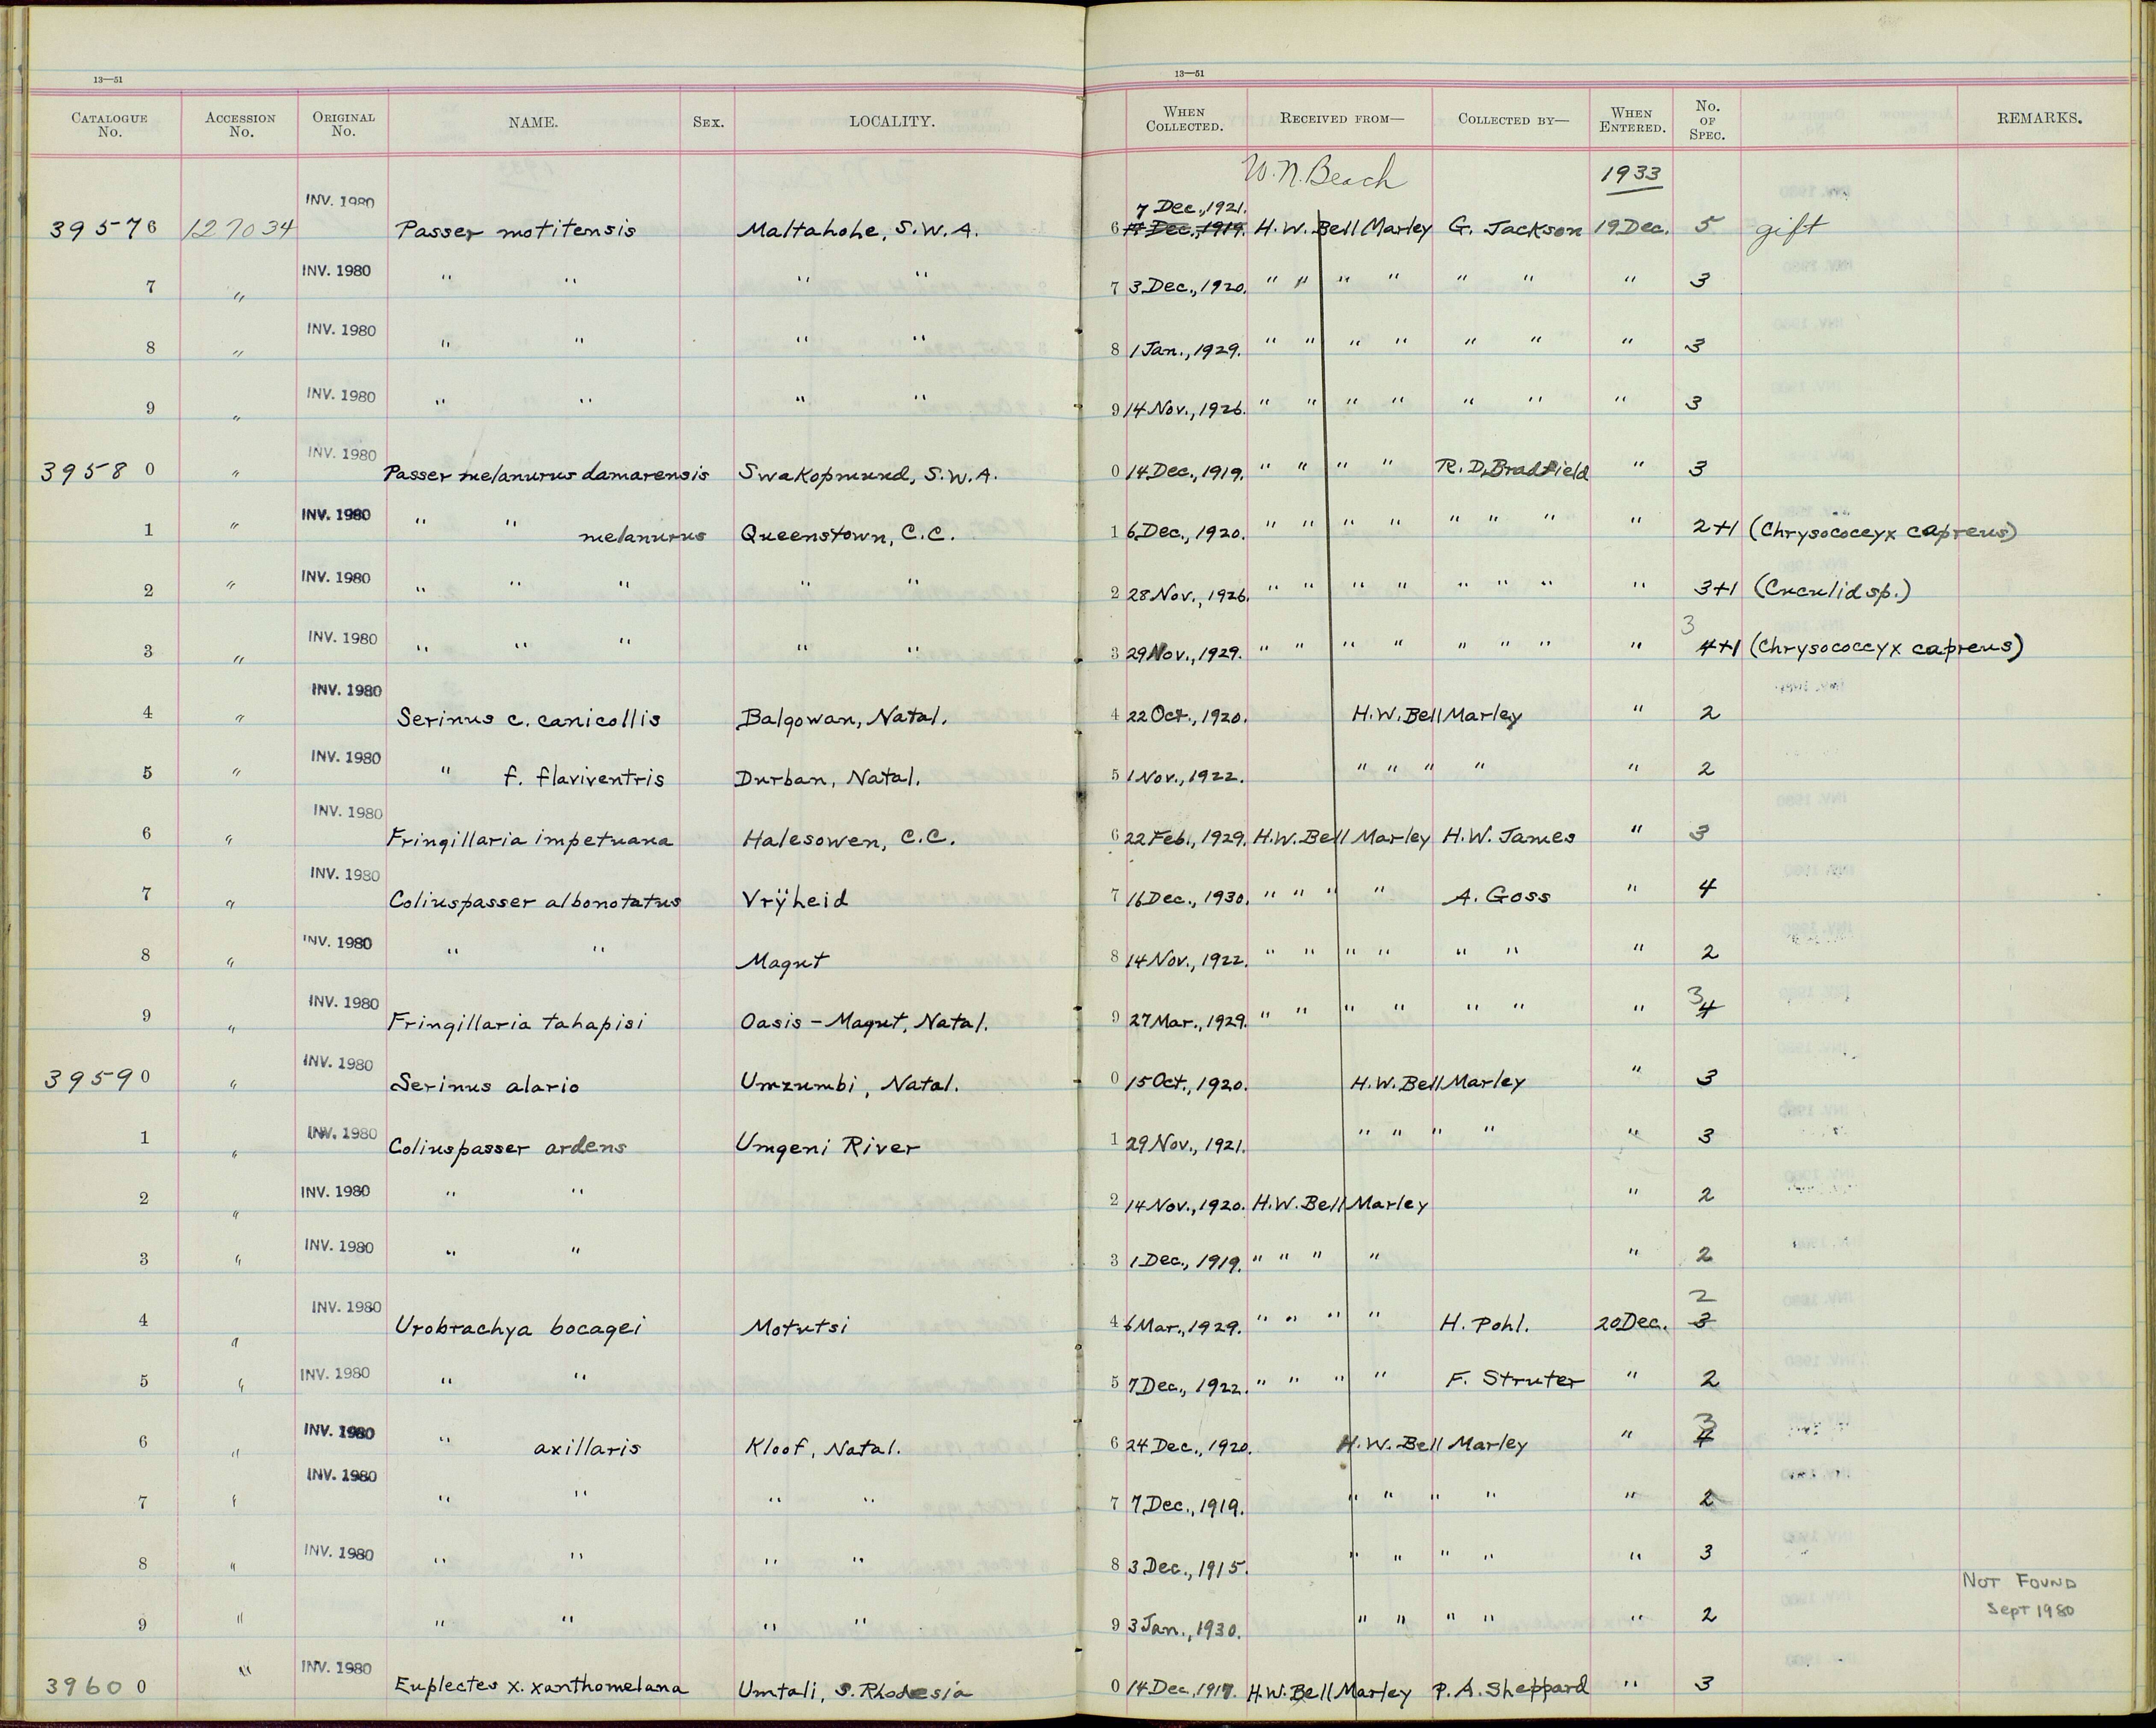 13—51 13—51
CATALOGUE No. ACCESSION No. ORIGINAL No. NAME. SEX. LOCALITY. WHEN COLLECTED. RECEIVED FROM— COLLECTED BY— WHEN ENTERED. No. OF SPEC. REMARKS.
W.N. Beach 1933
INV. 1980 7 Dec., 1921.
39576 127034 Passer motitensis Maltahohe, S.W.A. 6 Dec., 1919. H.W. Bell Marley G. Jackson 19 Dec. 5 gift
7 " INV. 1980 " " " " 7 3 Dec., 1920. " " " " " " " 3
8 " INV. 1980 " " " " 8 1 Jan., 1929. " " " " " " " 3
9 " INV. 1980 " " " " 9 14 Nov., 1926. " " " " " " " 3
39580 " INV. 1980 Passer melanurus damarensis Swakopmund, S.W.A. 0 14 Dec., 1919. " " " " R.D. Bradfield " 3
1 " INV. 1980 " " melanurus Queenstown, C.C. 1 6 Dec., 1920. " " " " " " " " 2+1 (Chrysococcyx capreus)
2 " INV. 1980 " " " " " 2 28 Nov., 1926. " " " " " " " " 3+1 (Cuculid sp.)
3
3 " INV. 1980 " " " " " 3 29 Nov., 1929. " " " " " " " " 4+1 (Chrysococcyx capreus)
4 " INV. 1980 Serinus c. canicollis Balgowan, Natal. 4 22 Oct., 1920. H.W. Bell Marley " 2
5 " INV. 1980 " f. flaviventris Durban, Natal. 5 1 Nov., 1922. " " " " " 2
6 " INV. 1980 Fringillaria impetuana Halesowen, C.C. 6 22 Feb., 1929. H.W. Bell Marley H.W. James " 3
7 " INV. 1980 Coliuspasser albonotatus Vrÿheid 7 16 Dec., 1930. " " " " A. Goss " 4
8 " INV. 1980 " " Magut 8 14 Nov., 1922. " " " " " " " 2
3
9 " INV. 1980 Fringillaria tahapisi Oasis – Magut, Natal. 9 27 Mar., 1929. " " " " " " " 4
39590 " INV. 1980 Serinus alario Umzumbi, Natal. 0 15 Oct., 1920. H.W. Bell Marley " 3
1 " INV. 1980 Coliuspasser ardens Umgeni River 1 29 Nov., 1921. " " " " " 3
2 " INV. 1980 " " 2 14 Nov., 1920. H.W. Bell Marley " 2
3 " INV. 1980 " " 3 1 Dec., 1919. " " " " " 2
2
4 " INV. 1980 Urobrachya bocagei Motutsi 4 6 Mar., 1929. " " " " H. Pohl. 20 Dec. 3
5 " INV. 1980 " " 5 7 Dec., 1922. " " " " F. Struter " 2
3
6 " INV. 1980 " axillaris Kloof, Natal. 6 24 Dec., 1920. H.W. Bell Marley " 4
7 " INV. 1980 " " " " 7 7 Dec., 1919. " " " " " 2
8 " INV. 1980 " " " " 8 3 Dec., 1915. " " " " " 3
NOT FOUND
9 " " " " " 9 3 Jan., 1930. " " " " " 2 Sept 1980
39600 " INV. 1980 Euplectes x. xanthomelana Umtali, S. Rhodesia 0 14 Dec., 1917. H.W. Bell Marley P.A. Sheppard " 3